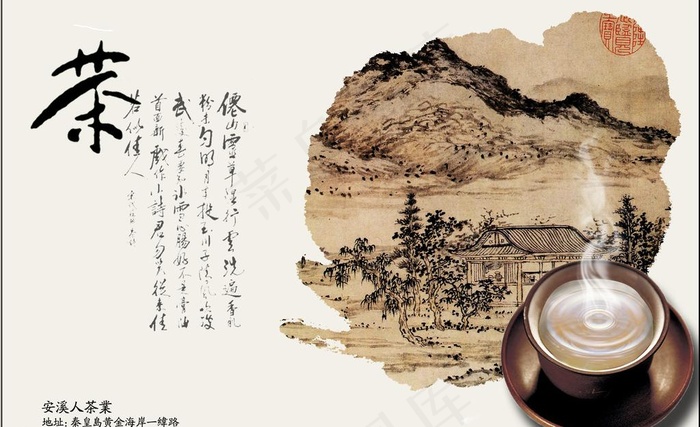 茶
僊山靈草濕行雲洗遍香肌
粉未勻明月來投玉川子清風吹破
武林春要知冰雪心腸好不是膏油
首面新戲作小詩君勿笑從來佳
茗似佳人
安溪人茶業
地址: 秦皇島黃金海岸一緯路